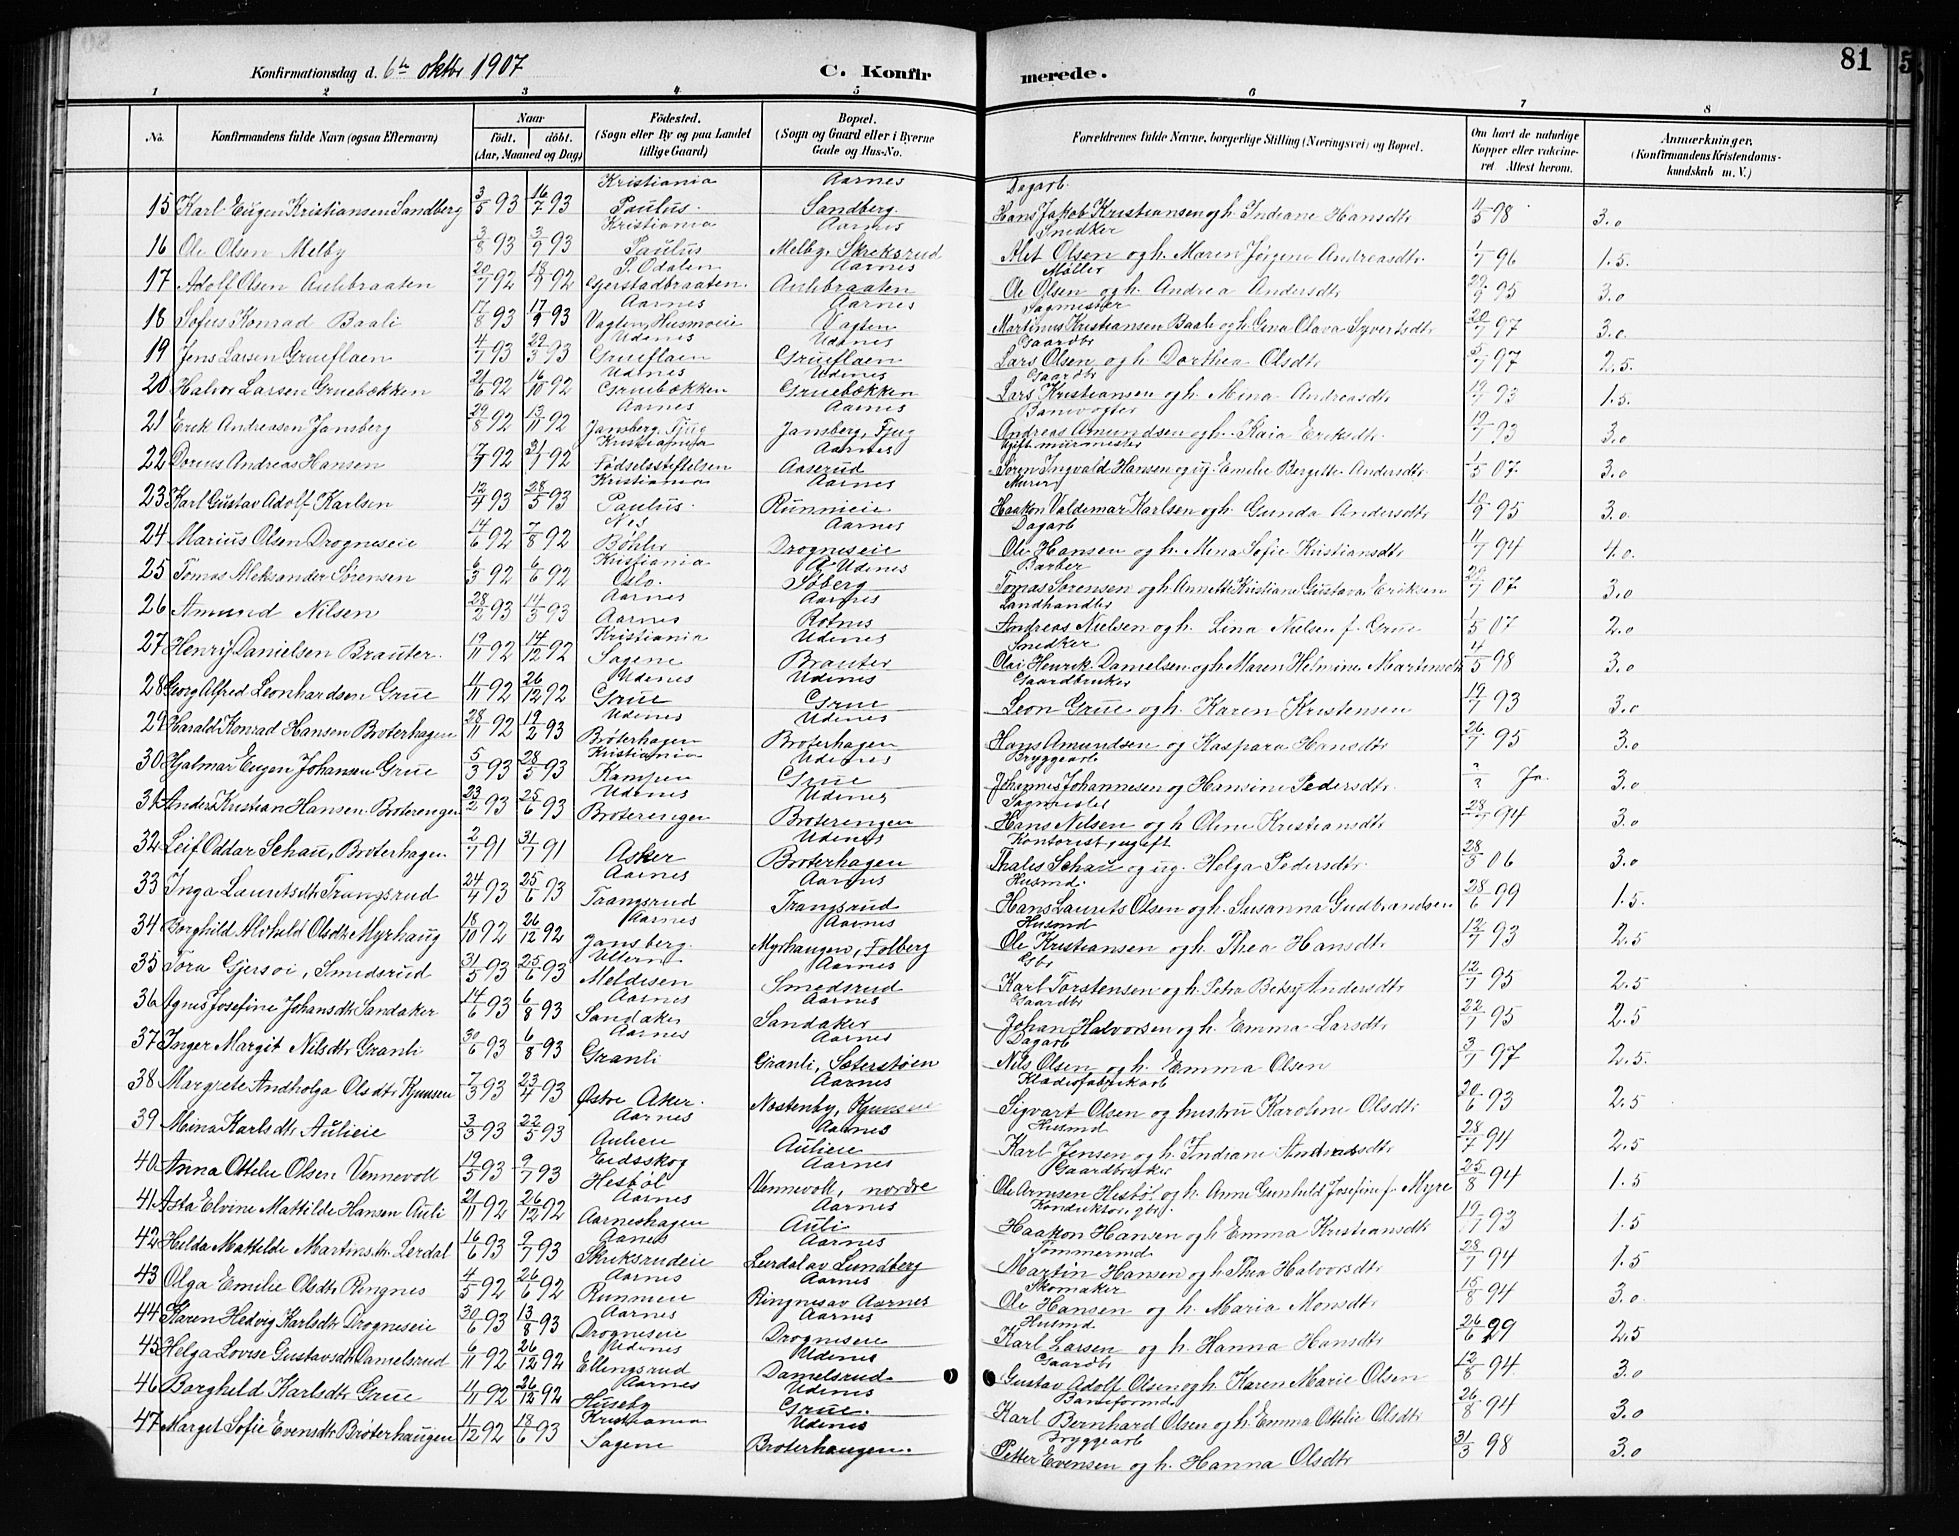 81
Konfirmationsdag d. 6te oktbr 1907
C. Konfirmerede.
1 2 3 4 5 6 7 8
No. Konfirmandens fulde Navn (ogsaa Efternavn) Naar født. døbt. (Aar, Maaned og Dag) Fødested. (Sogn eller By og paa Landet tillige Gaard) Bopæl. (Sogn og Gaard eller i Byerne Gade og Hus-No. Forældrenes fulde Navne, borgerlige Stilling (Næringsvei) og Bopæl. Om havt de naturlige Kopper eller vakcineret Attest herom. Anmærkninger, (Konfirmandens Kristendomskundskab m. V.)
Kristiania Aarnes Dagarb.
15 Karl Eugen Kristiansen Sandberg 3/5 93 16/7 93 Paulus. Sandberg. Hans Jakob Kristiansen og h. Indiane Hansdtr 4/5 98 3.0
Kristiania Aarnes Snedker
16 Ole Olsen Melby 3/8 93 3/9 93 Paulus Melby, Skeksrud Alet Olsen og h. Maren Jørgine Andreasdtr. 1/7 96 1.5.
S. Odalen Aarnes Møller
17 Adolf Olsen Aulibraaten 20/7 92 18/9 92 Gjerstadbraaten. Aulibraaten Ole Olsen og h. Andrea Andersdtr 29/9 95 3.0
Aarnes Aarnes Sagmester
18 Sofus Konrad Baali 17/8 93 17/9 93 Vagten, Husmoeie Vagten Martinus Kristiansen Baali og h. Gina Olava Syvertsdtr 20/7 97 3.0.
Udenes Udenes Gaardbr
19 Jens Larsen Grueflaen 4/1 93 22/3 93 Grueflaen Grueflaen Lars Olsen og h. Dorthea Olsdtr 97 2.5.
Udenes Udenes Gaardbr
20 Halvor Larsen Gruebækken 21/6 92 16/10 92 Gruebækken Gruebækken Lars Kristiansen og h. Mina Andreasdtr 93 1.5.
Aarnes Aarnes Banevogter
21 Erik Andreasen Jansberg 29/8 92 13/11 92 Jansberg, Fjug Jansberg, Fjug Andreas Amundsen og h. Kaia Eriksdtr. 19/7 93 3.0
Kristiania Aarnes Ugift murmester
22 Dorius Andreas Hansen 92 92 Fødselsstiftelsen Aaserud Søren Ingvald Hansen og ug. Emilie Bergitte Andersdtr 1/5 07 3.0
Kristiania Aarnes Murer
23 Karl Gustav Adolf Karlsen 12/4 93 28/5 93 Paulus. Runnieie Haakon Valdemar Karlsen og h. Gunda Andersdtr 95 3.0.
Nes Aarnes Dagarb
24 Marius Olsen Drogneseie 14/6 92 7/8 92 Bøhler Drogneseie Ole Hansen og h. Mena Sofie Kristiansdtr 94 4.0.
Kristiania Udenes Barber
25 Tomas Aleksander Sørensen 6/3 92 6/6 92 Oslo. Søberg Tomas Sørensen og h. Annette Kristiane Gustava Eriksen 07 3.0
Aarnes Aarnes Landhandler
26 Amund Nilsen 28/2 93 14/3 93 Aarnes Rotnes Andreas Nielsen og h. Lina Nielsen f. Grue 1/5 07 2.0
Kristiania Udenes Snedker
27 Henrij Danielsen Brauter. 19/11 92 14/12 92 Sagene Brauter Olai Henrik Danielsen og h. Maren Helmine Martinsdtr 4/5 98 3.0
Udenes Udenes Gaardbruker
28 Georg Alfred Leonhardsen Grue 4/11 92 26/12 92 Grue Grue Leon Grue og h. Karen Kristensen 19/7 93 3.0
Udenes Udenes
29 Harald Konrad Hansen Broterhagen 28/11 92 19/2 93 Brøterhagen Broterhagen Hans Amundsen og Kaspara Hansdtr 26/7 95 3.0
Kristiania Udenes Bryggearb
30 Hjalmar Eugen Johansen Grue 5/3 93 28/5 93 Kampen Grue Johannes Johannesen og Hansine Pedersdtr. ?/? Ja. 3.0
Udenes Udenes Sagmester
31 Anders Kristian Hansen Broterengen 23/2 93 25/6 93 Broterengen Broterengen Hans Nilsen og h Oline Kristiansdtr 94 3.0
Udenes Kontorist, ugift
32 Leif Oddar Schau, Broterhagen 2/7 91 31/7 91 Asker Broterhagen Thalis Schau og ug. Helga Pedersdtr. 28/5 06 3.0
Aarnes Aarnes Husmd.
33 Inga Lauritsdtr Trangsrud 24/4 93 25/6 93 Traangsrud Trangsrud Hans Laurits Olsen og h. Susanna Gudbrandsen 28/6 99 1.5.
Aarnes Aarnes Husmd
34 Borghild Alvhild Olsdtr Myrhaug 18/10 92 26/12 92 Jansberg. Myrhaugen, Folberg Ole Kristiansen og h. Thea Hansdtr 12/7 93 2.5
Ullern Aarnes Gbr
35 Tora Gjersøi, Smedsrud 31/5 93 25/6 93 Meldisen Smedsrud Karl Torstensen og h. Petra Betsy Andersdtr 12/7 95 2.5
Aarnes Aarnes Gaardbr
36 Agnes Josefine Johansdtr Sandaker 14/6 93 6/8 93 Sandaker Sandaker Johan Halvorsen og h. Emma Larsdtr 22/7 95 2.5
Aarnes Aarnes Dagarb
37 Inger Margit Nilsdtr Granli 30/6 93 6/8 93 Granli Granli, Sæterstøen Nils Olsen og h. Emma Olsen 3/7 97 2.5.
Aarnes Klædesfabrikarb
38 Margrete Andholga Olsdtr Kjunsen 7/3 93 23/4 93 Østre Aker. Nøstenby, Sigvart Olsen og hustru Karoline Olsdtr 20/6 93 2.5
Aarnes Aarnes Husmd
39 Mina Karlsdtr Aulieie 3/3 93 22/5 93 Aulieie Aulieie Karl Jensen og h. Indiane Andreasdtr 28/7 94 2.5
Eidsskog Aarnes Gaardbruker
40 Anna Ottilie Olsen Vennevoll 19/5 93 9/7 93 Hesbøl Vennevoll, nordre Ole Arnesen Hesbøl og h. Anne Gunhild Josefine f. Myre 25/8 94 1.5
Aarnes Aarnes Konduktør, gbr.
41 Asta Elvine Mattilde Hansen Auli 21/11 92 26/12 92 Aarneshagen Auli Haakon Hansen og h Emma Kristiansdtr 19/7 93 1.5
Aarnes Aarnes Tømmermd
42 Hilda Mattilde Martinsdtr. Lerdal 16/6 93 9/7 93 Skriksrudeie Leirdal av Lundberg Martin Hansen og h Thea Halvorsdtr 28/7 94 1.5
Aarnes Aarnes Skomaker
43 Olga Emilie Olsdtr Ringnes 4/5 92 26/6 92 Runnieie Ringnes av Aarnes Ole Hansen og h. Maria Monsdtr 15/8 94 3.0.
Aarnes Aarnes Husmd
44 Karen Hedvig Karlsdtr Drogneseie 30/6 93 13/8 93 Drogneseie Drogneseie Karl Larsen og h. Hanna Hansdtr 26/6 99 2.5
Udenes Udenes Gaardbr
45 Helga Lovise Gustavsdtr Danielsrud 6/11 92 26/12 92 Ellingsrud Danielsrud Gustav Adolf Olsen og h. Karen Marie Olsen 12/8 94. 3.0
Aarnes Udenes Baneformd
46 Borghild Karlsdtr Grue 4/11 92 26/12 92 Huseby Grue. Karl Bernhard Olsen og h. Emma Ottilie Olsdtr 26/8 94 3.0
Kristiania Udenes Bryggearb
47 Margit Sofie Evensdtr Brøterhaugen 4/12 92 18/6 93 Sagene Broterhaugen. Petter Evensen og h. Hanna Olsdtr 31/3 98 3.0